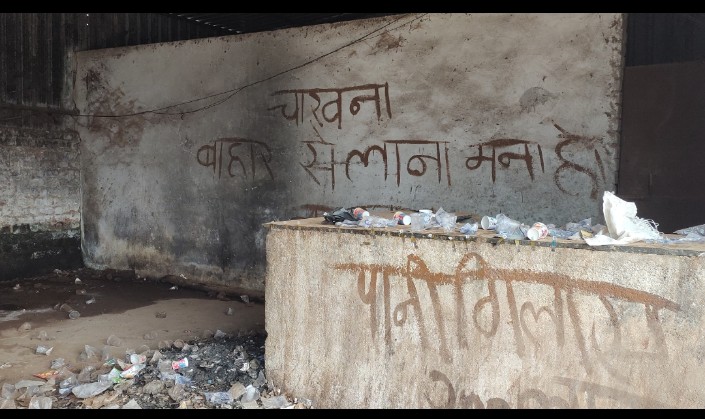 चाखना
बाहर से लाना मना है
पानी गिलास